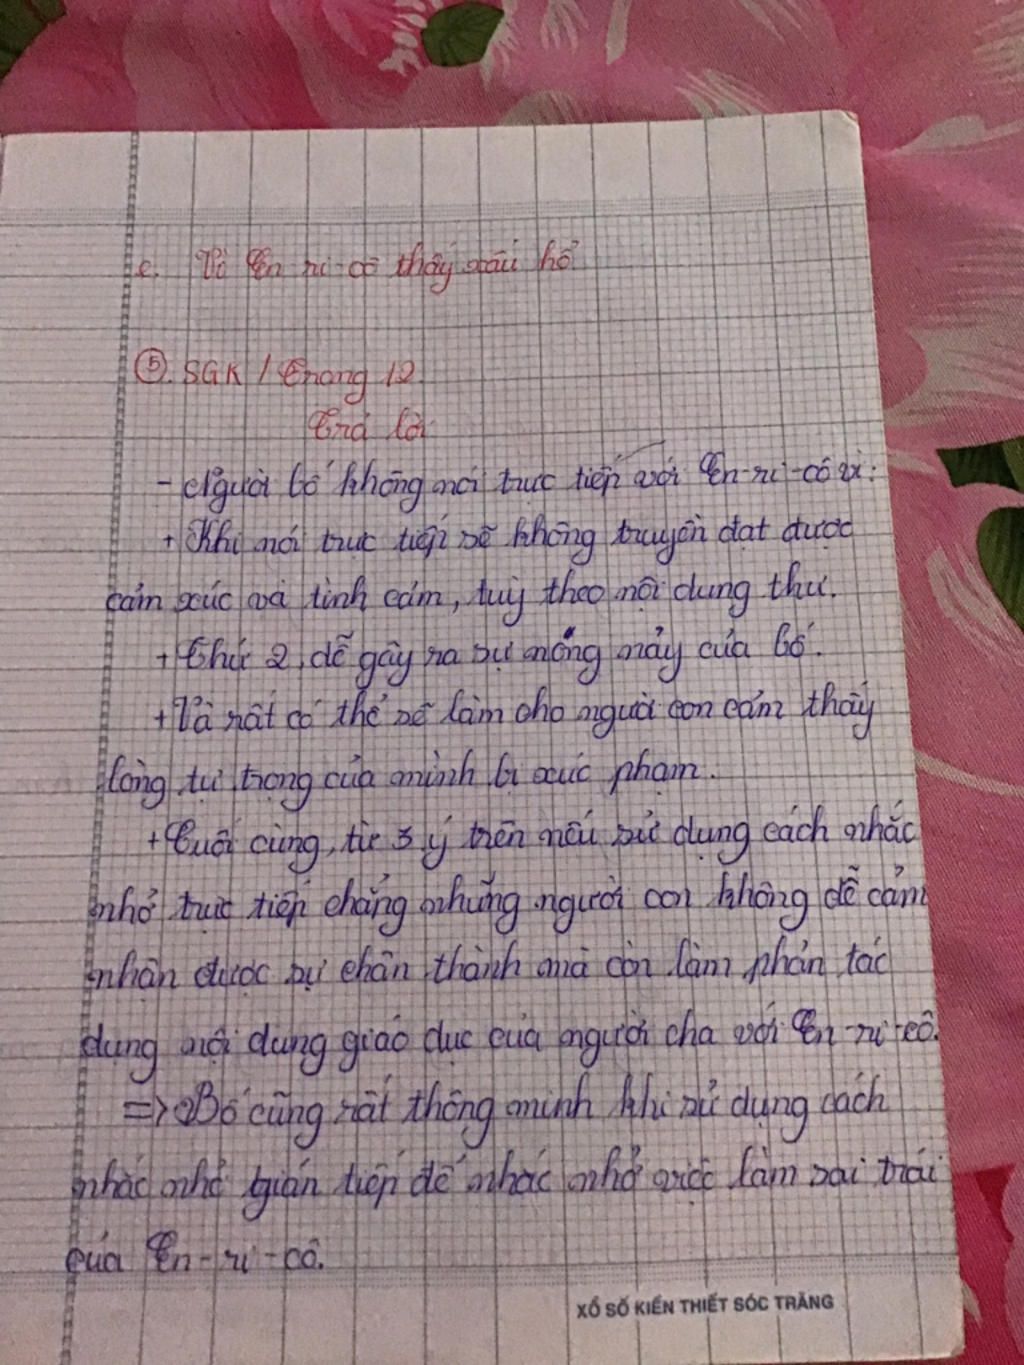 e. Vì En-ri-cô thấy xấu hổ
⑤. SGK / Trang 12
Trả lời
- Người bố không nói trực tiếp với En-ri-cô vì:
+ Khi nói trực tiếp sẽ không truyền đạt được
cảm xúc và tình cảm, tuỳ theo nội dung thư.
+ Thứ 2, dễ gây ra sự nóng nảy của bố.
+ Và rất có thể sẽ làm cho người con cảm thấy
lòng tự trọng của mình bị xúc phạm.
+ Cuối cùng, từ 3 ý trên nếu sử dụng cách nhắc
nhở trực tiếp chẳng những người con không dễ cảm
nhận được sự chân thành mà còn làm phản tác
dụng nội dung giáo dục của người cha với En-ri-cô.
=> Bố cũng rất thông minh khi sử dụng cách
nhắc nhở gián tiếp để nhắc nhở việc làm sai trái
của En-ri-cô.
XỔ SỐ KIẾN THIẾT SÓC TRĂNG